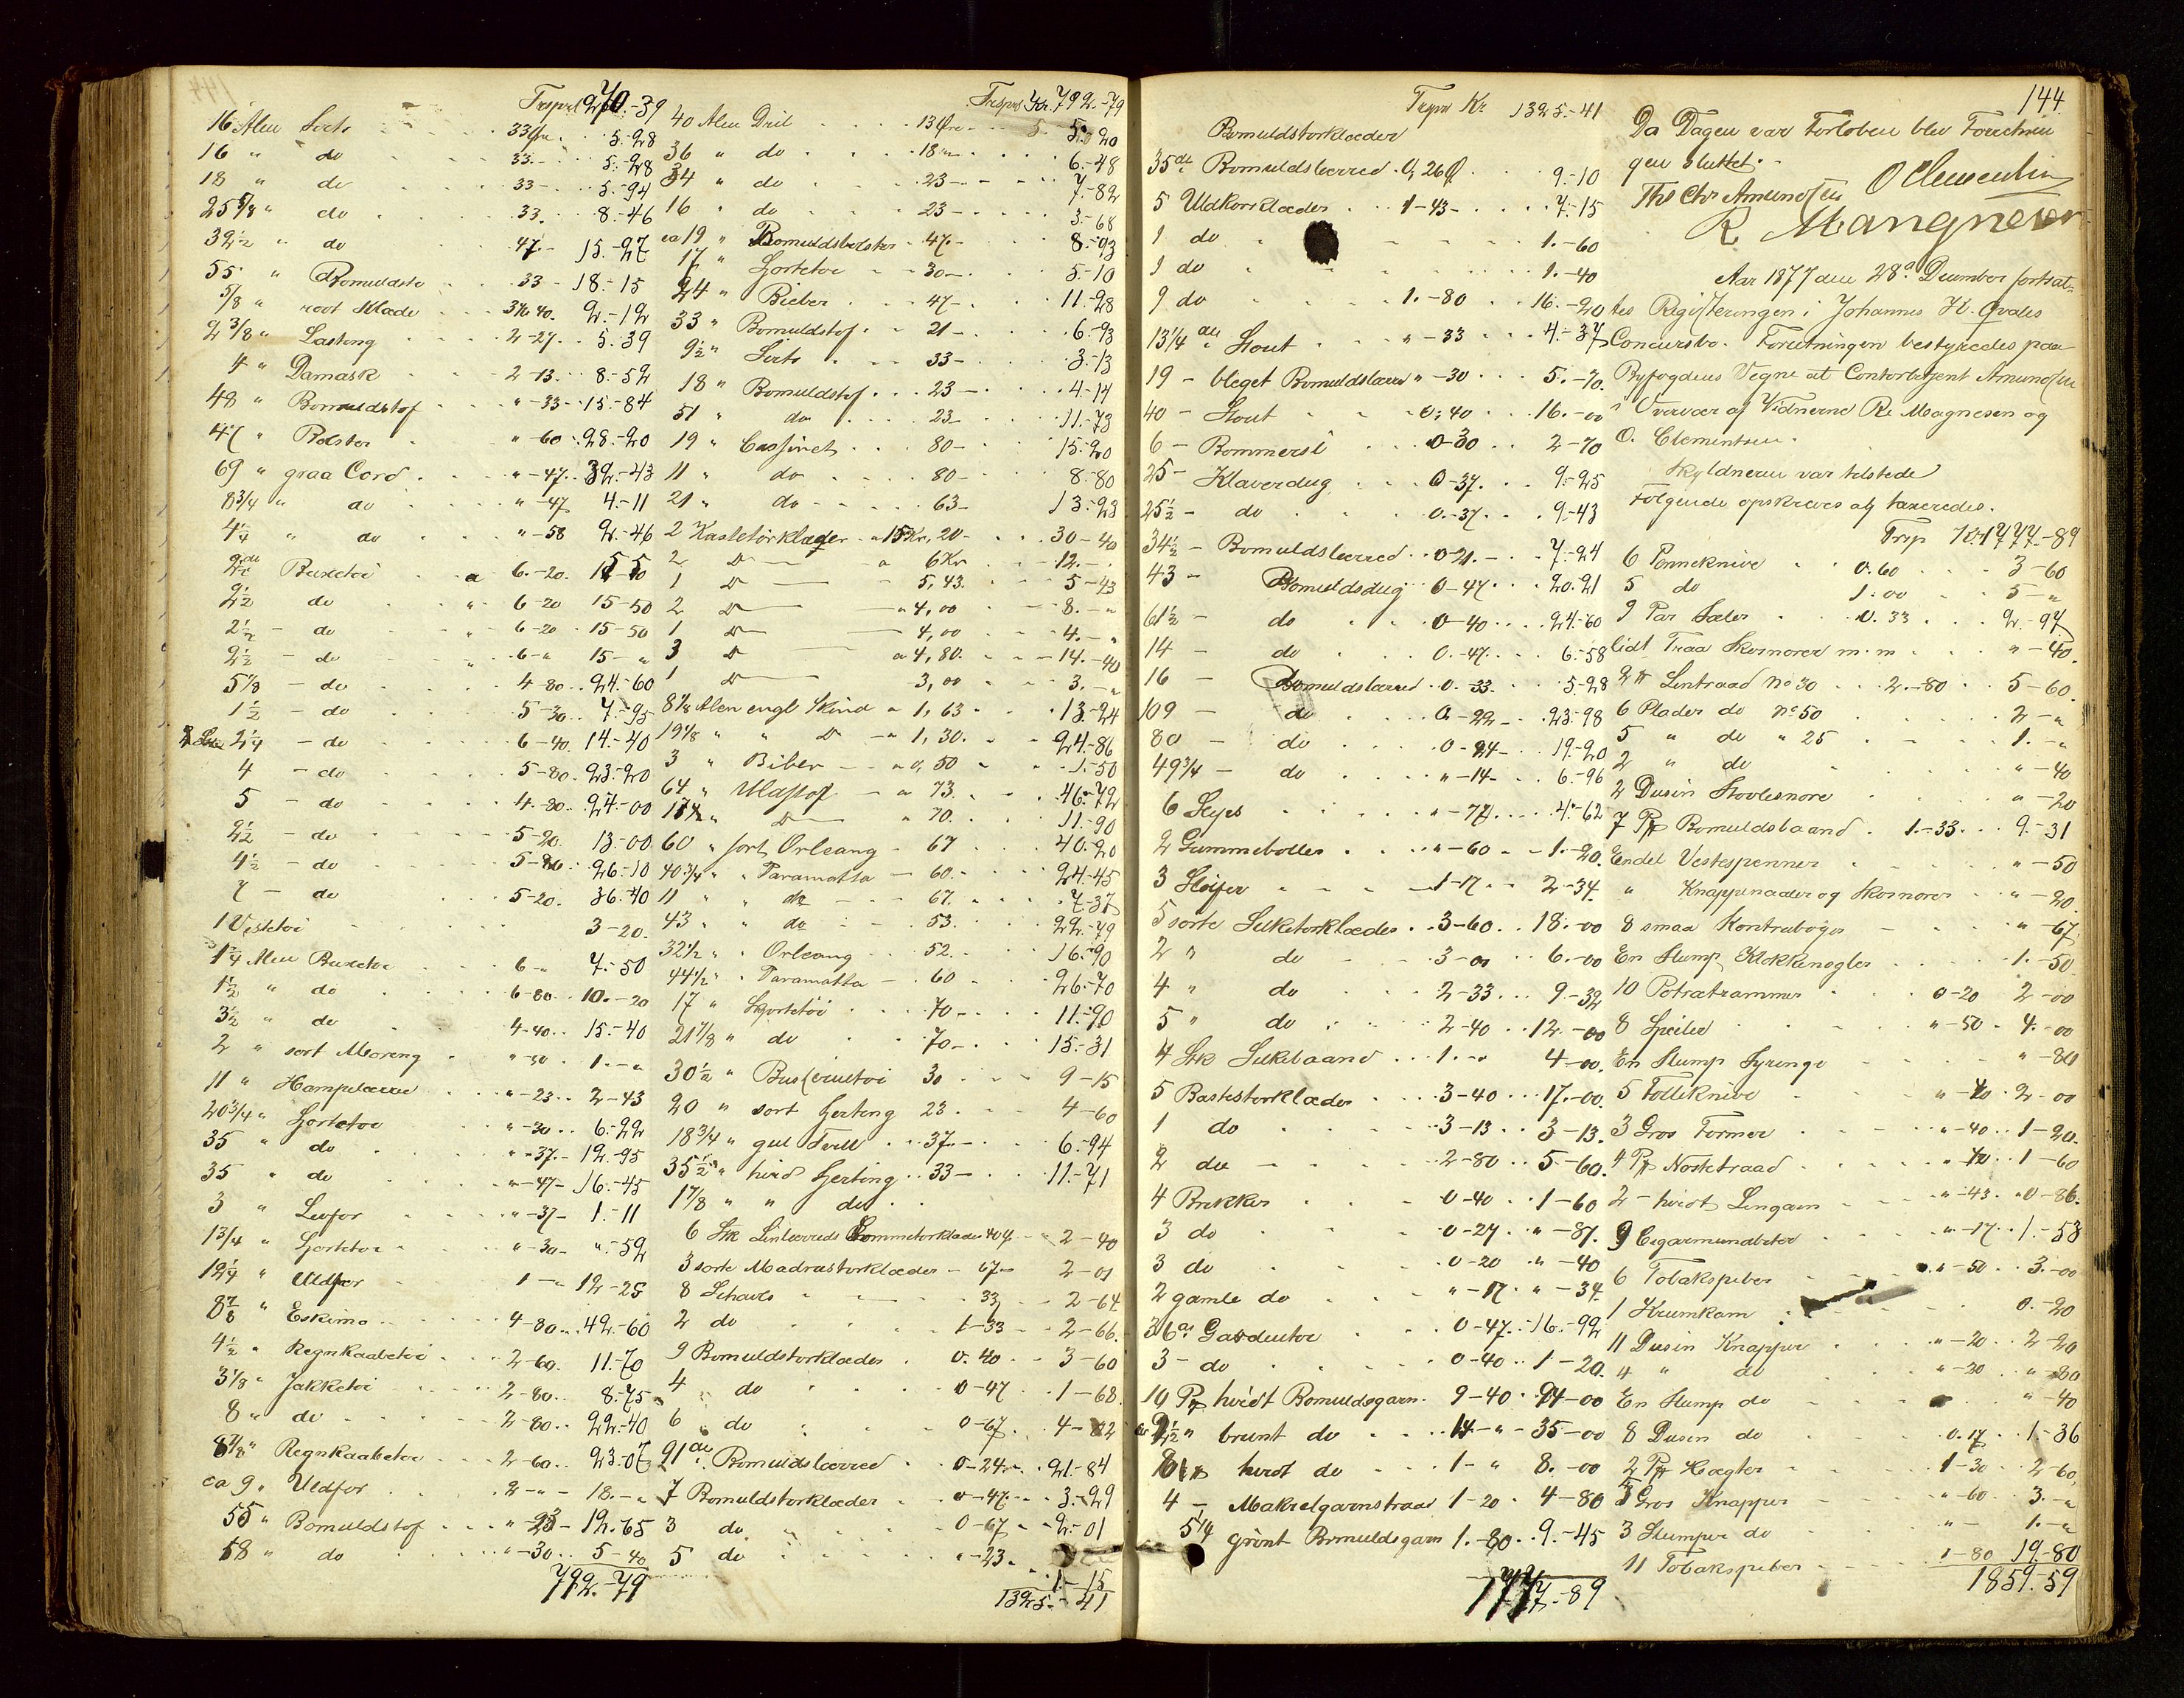 Trsprt 270.-39
16 Alen Sirts 33 Øre 5.-28
16 " do 33.- 5.-28
18 " do 33- 5.-94
25 5/8 " do 33. 8.-46
32 1/2 " do 47.- 15.-27
55 " Bomuldsto 33- 18.-15
5/8 " rødt Klæde 3 Kr 40. 2.-12
2 3/8 " Lasteng 2-27 5.-39
4 " Damask 2-13. 8.-52
48 " Bomuldstof "-33- 15.-84
47 " Bolster "-60- 28.-20
69 " graa Cord "-47. 32.-43
8 3/4 " do "-47 4.-11
4 1/4 " do "-58 2.-46
2 1/2 al Buxetøi a 6.-20. 15-50
2 1/2 do " 6-20 15-50
2 1/2 - do " 6-20 15-50
2 1/2 - do " 6-" 15-"
5 1/8 - do 4-80 24.-60
1 1/2 - do 5-30 7.-95
2 1/4 - do 6-40. 14.-40
4 - do 5-80. 23.-20
5 - do 4.-80. 24.-00
2 1/2 - do 5-20. 13-00
4 1/2 - do 5-80. 26.-10
7 - do 5-20. 36.-40
1 Vestetøi 3-20.
1 1/4 Alen Buxetøi 6-" 7.-50
1 1/2 " do 6-80. 10.-20
3 1/2 " do 4-40. 15.-40
2 " sort Moreng "-50 1.-"
11 " Hampelærred "-23 2-43
20 3/4 " Hjortetøi "-30 6.-22
35 " do "-37- 12.-95
35 " do "-47- 16.-45
3 " Løvfor "-37- 1.-11
1 3/4 " Hjortetøi "-30- ".-52
12 1/4 " Uldfor 1-" 12-25
8 7/8 " Eskimo 4-80 42.-60
4 1/2 " Regnkaabetøi 2-60. 11.-70
3 1/8 " Jakketøi 2-80 8.-75
8 " do 2-80 22.-40
8 7/8 " Regnkaabetøi 2-60 23.-07
ca 9 " Uldfor 2-" 18.-"
55 " Bomuldstof "-23- 12.65
18 " do "-30 5-40
792.-79
Trspr Kr. 792.-79
40 Alen Dril 13 Øre 5.20
36 " do 18 " 6.-48
34 " do 23- 7.-82
16 " do 23- 3.-68
ca 19 " Bomuldsbolster 47.- 8.-93
17 " Hjortetøi 30- 5.-10
24 " Bieber 47- 11.-28
33 " Bomuldstof 21- 6.-93
9 1/2 " Sirts 33- 3.-13
18 " Bomuldstof 23- 4.-14
51 " do 23- 11.-73
19 " Cassinet 80- 15.-20
11 " do 80- 8.-80
21 " do 63- 13.-23
2 Kastetørklæder a 15 Kr, 20- 30-40
2 D a 6 Kr 12.-
1 D 5,43. 5-43
2 D a 4,00 8.-"
1 D 4,00 4.-"
3 D a 4,80. 14.-40
1 D 3,00 3.-"
8 1/8 Alen engl Skind a 1,63 13.-24
19 1/8 " " D a 1,30. 24.-86
3 " Biber a 0,50 1.-50
64 " Ulastof a 73. 46.-72
17 " D a 70. 11.-90
60 " sort Orleang - 67 40.-20
40 3/4 " " Paramatta - 60. 24.-45
11 " " do 67. 7.-37
43 " " do 53. 22.-79
32 1/2 " " Orleang 52. 16.-90
44 1/2 " " Paramatta - 60 26.-70
17 " Skjortetøi 70- 11.-90
21 7/8 " do 70- 15.-31
30 1/2 " Busserultøi 30 9-15
20 " sort Herteng 23. 4-60
18 3/4 " gul Tvill 37- 6.-94
35 1/2 " hvid Herting 33- 11.-71
1 7/8 " " do
6 Stk Linlærreds Lommetørklæder 40 Ø 2-40
3 sorte Madrastørklæder - 67- 2-01
8 Schavls 33 2-64
2 do 1-33 2-66.
9 Bomuldstørklæder 0.40 3-60
4 do 0-47 1-68.
6 do 0-67 4-02
91 al. Bomuldslærred 0-24 21.-84
7 Bomuldstørklæder 0-47 3.-29
3 do 0-67 2.-01
5 do "-23. 1.-15
1325.-41
Trspr Kr 1325.-41
Bomuldstørklæder
35 al Bomuldslærred 0,26 Ø 9.-10
5 Uldtørklæder 1-43- 7.-15
1 do 1.-60
1 do 1.-40
9 do 1.-80 16.-20
13 1/4 al Stout "-33 4.-37
19 - bleget Bomuldslærred "-30 5.-70
40 - Stout 0:40 16.-00
6 - Bommersi 0-30 2-70
25 - Klaverdug 0-37. 9.-25
25 1/2 - do 0.-37. 9.-43
34 1/2 - Bomuldslærred 0-21.- 7.-24
43 - Bomuldsdug 0-47 20.21
61 1/2 - do 0-40 24.-60
14 - do 0.-47. 6.-58
16 - Bomuldslærred 0.-33. 5-28
109 - do 0-22 23.-98
80 - do 0-24 19.-20
49 3/4 - do "-14 6.-96
6 Slips "-77 4.-62
2 Gummebolter "-60 - 1.-20.
3 Sløifer 1-17 2-34.
5 sorte Silketørklæder 3-60 18.-00
2 " do 3-00 6.-00
4 " do 2-33 9.-32
5 " do 2-40 12.-00
4 Stk Silkbaand 1.-" 4-00.
5 Bastestørklæder 3-40 17.-00.
1 do 3-13 3-13.
2 do 2-80 5.-60.
4 Brikker 0-40 1-60
3 do 0-27 "-87.
3 do 0-20 "-40
2 gamle do "-17 "-34.
36 al. Gardentøi 0-47. 16.-92
3 - do 0-40 1-20.
10 P hvidt Bomuldsgarn. 9-40 94-00
2 1/2 " brunt do 14-" 35-00
8 hvidt do 1-" 8.-00
4 - Makrelgarnstraad 1-20 4-80
5 1/4 grønt Bomuldsgarn 1.-80 9.-45
1777-89
144.
Da Dagen var forløben blev Forretnin
gen sluttet.-
O Clementsen
Ths Chr Amundsen
R Mangnesen
Aar 1877 den 28de December fortsat-
tes Registreringen i Johannes H. Qvales
Concursbo. Forretningen bestyredes paa
Byfogdens Vegne af Contorbetjent Amundsen
i Overvær af Vidnerne R. Magnesen og
O. Clementsen.
Skyldneren var tilstede
Følgende opskreves og taxeredes.
Trsp Kr 1777.-89
6 Penneknive 0.60 3-60
5 do 1:00 5-"
9 Par Sæler 0.33 2.-97
lidt Traa Skosnorer m.m "-40.
2 P Lintraad No 30 2.-80 5-60.
6 Plader do No 50 2-"
5 " do " 25 1.-"
2 " do "-40
2 Dusin Stovlesnore "-20
7 P Bomuldsbaand 1.-33 9.-31
Endel Vestespenner "-50
" Knappenaaler og Skosnorer "-20
8 smaa Kontrabøger "-67
En Slump Klokkenøgler 1.-50
10 Potrætrammer 0-20 2-00
8 Speiler "-50 4.-00
En Slump Syringe "-80
5 Folleknive "-40 2-00
3 Gros Former "-40 1-20.
4 P Nøstetraad "-40 1-60
2 - hvidt Lingarn "-43. "0-86.
9 Cigarmundbeter "-17 1.-53
6 Tobakspiber "-50 3.-00
1 Krumkam 0.-20
11 Dusin Knapper "-20 2-20
4 " do "-20 "-80
En Slump do "-40
8 Dusin do 0.17 1.-36
2 P Hægter 1-30 2-60
5 Gros Knapper "-60 3.-"
3 Slumper do "- 1.-"
11 Tobakspiber 1-80 19.-80
1859.-59